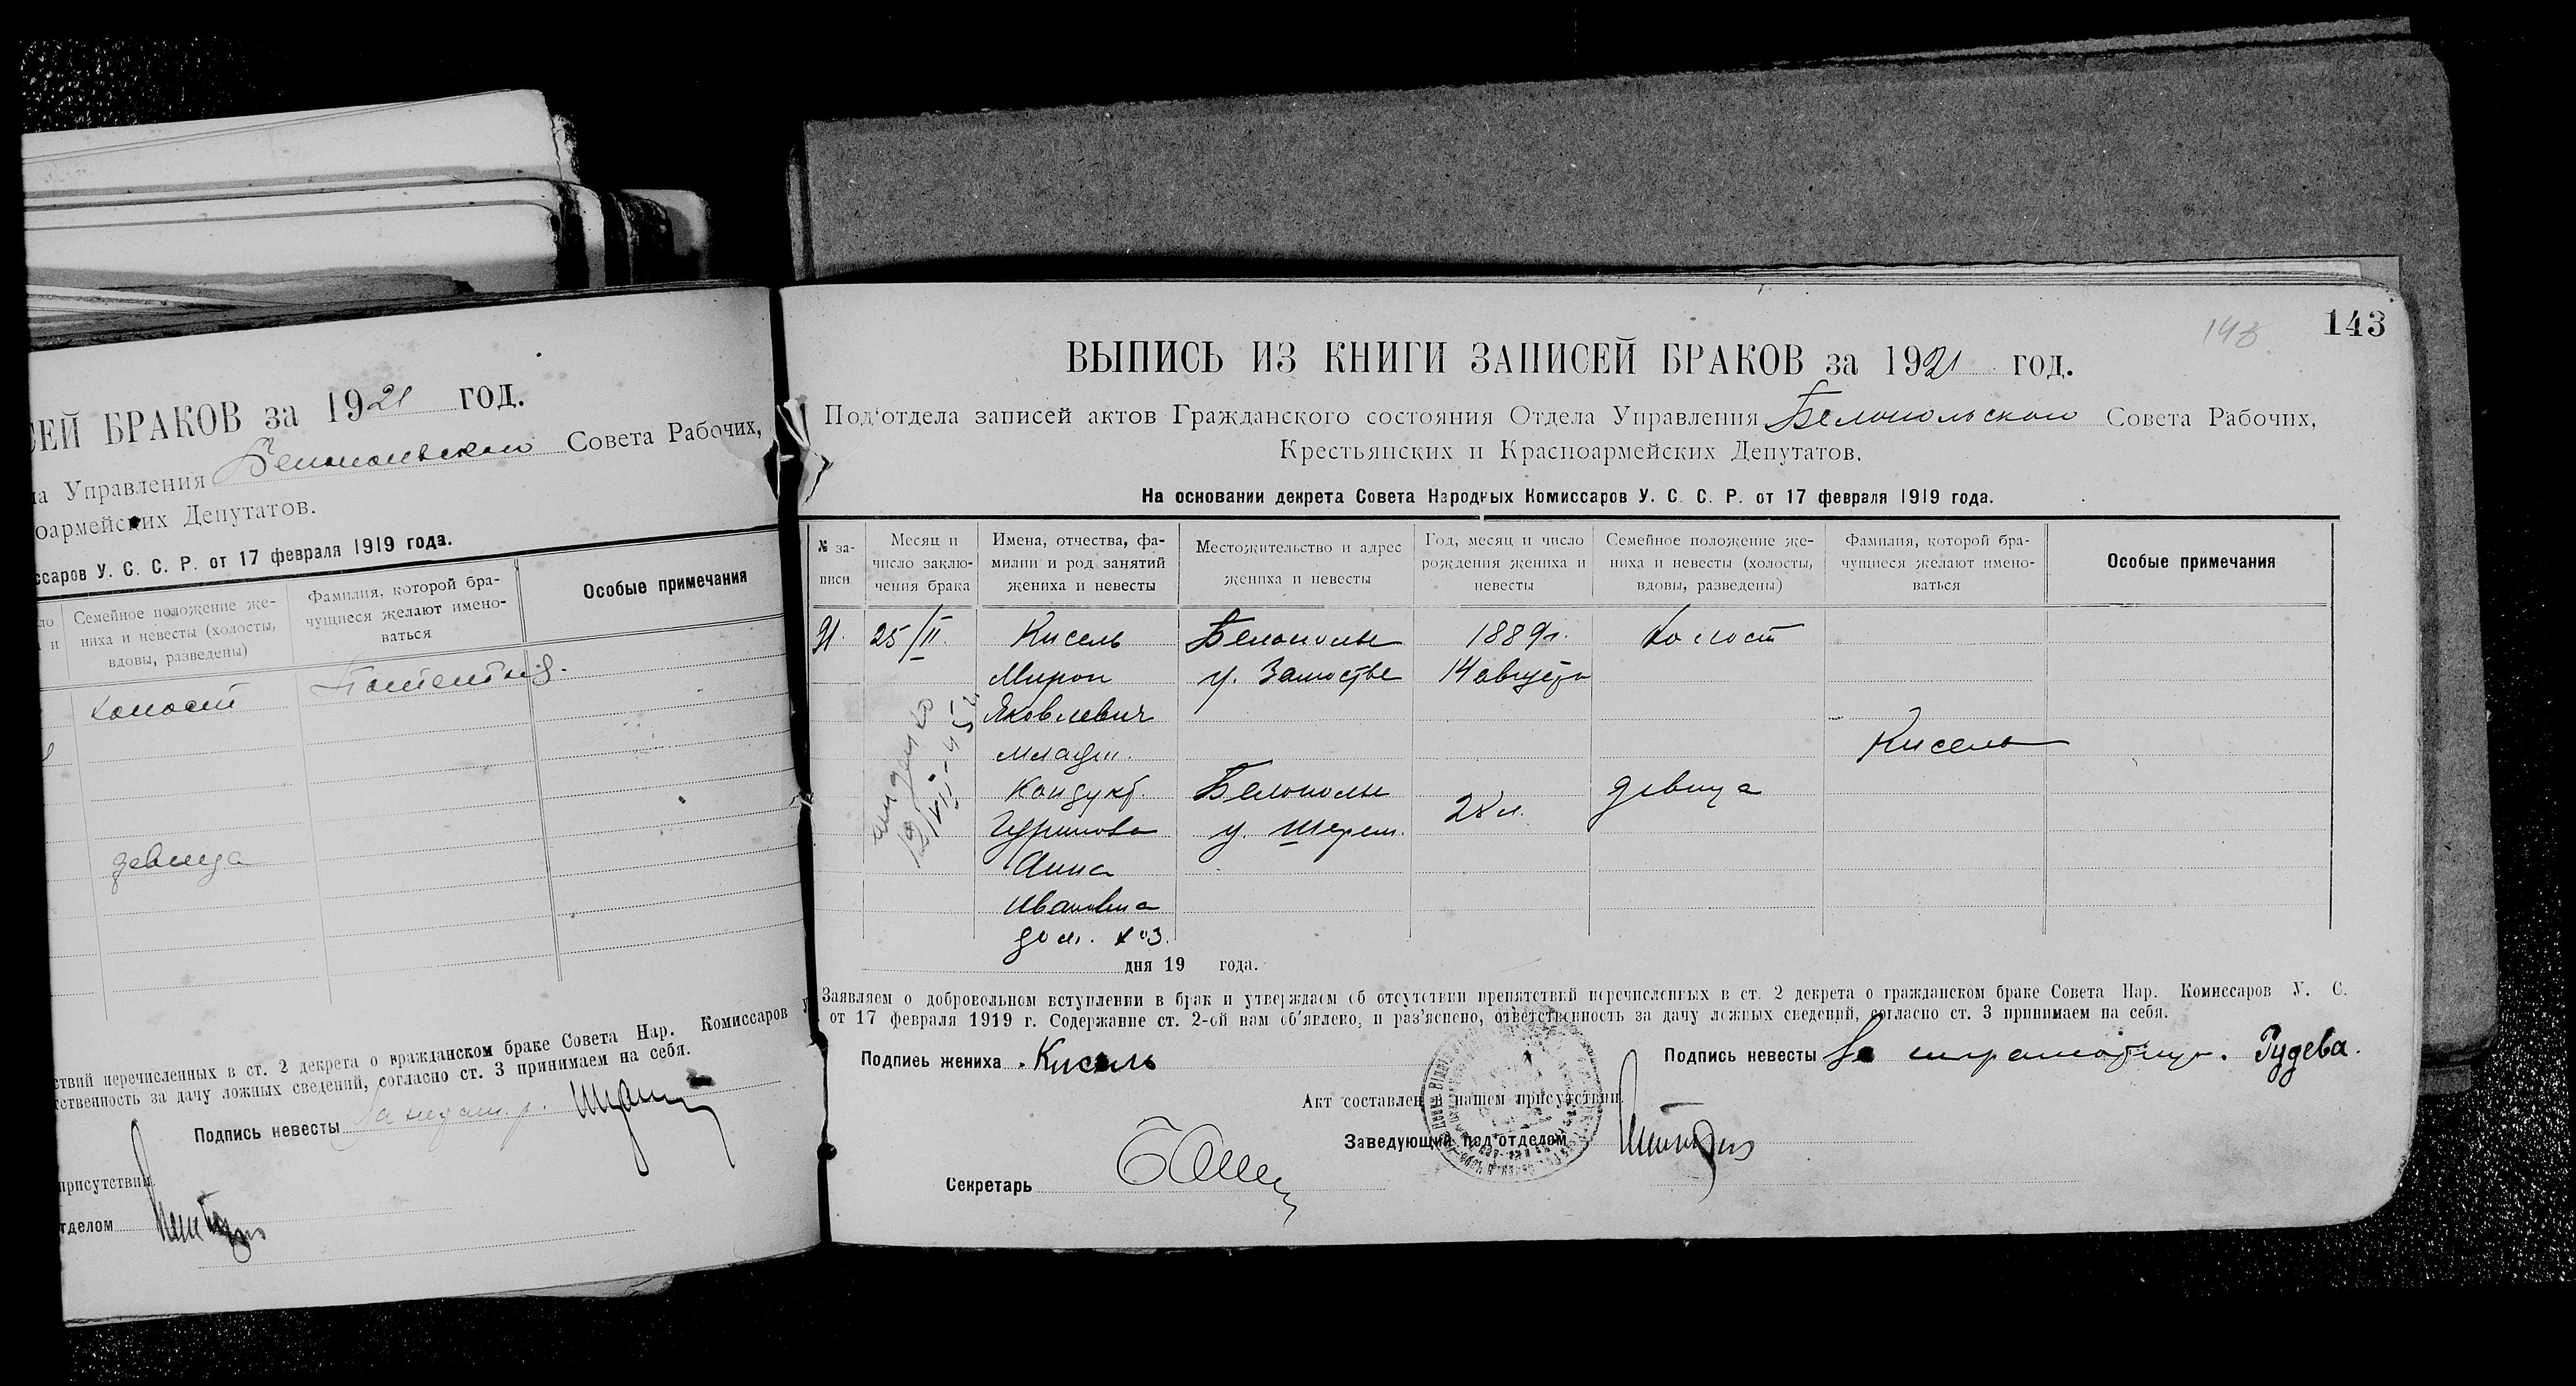 СЕЙ БРАКОВ за 1921 год.
на Управления Белопольского Совета Рабочих,
оармейских Депутатов.
ссаров У. С. С. Р. от 17 февраля 1919 года.
Семейное положение же-
ниха и невесты (холосты,
вдовы, разведены)
Фамилия, которой бра-
чущиеся желают имено-
ваться
Особые примечания
холост
девица
ствий перечисленных в ст. 2 декрета о вражданском браке Совета Нар. Комиссаров У
тственность за дачу ложных сведений, согласно ст. 3 принимаем на себя.
Подпись невесты За
присутствии.
тделом
143
ВЫПИСЬ ИЗ КНИГИ ЗАПИСЕЙ БРАКОВ за 1921 год.
Под'отдела записей актов Гражданского состояния Отдела Управления Белопольского Совета Рабочих,
Крестьянских и Красноармейских Депутатов.
На основании декрета Совета Народных Комиссаров У. С. С. Р. от 17 февраля 1919 года.
№ за-
писи
Месяц и
число заклю-
чения брака
Имена, отчества, фа-
милии и род занятий
жениха и невесты
Местожительство и адрес
жениха и невесты
Год, месяц и число
рождения жениха и
невесты
Семейное положение же-
ниха и невесты (холосты,
вдовы, разведены)
Фамилия, которой бра-
чущиеся желают имено-
ваться
Особые примечания
91. 25/II Кисель Белополье 1889г. холост
Мирон у. Замостье 14 августа
Яковлевич
младш. Кисель
Кондукт. Белополье 28 л. девица
у. Шерем.
Анна
Ивановна
дом. хоз.
дня 19 года.
Заявляем о добровольном вступлении в брак и утверждаем об отсутствии препятствий перечисленных в ст. 2 декрета о гражданском браке Совета Нар. Комиссаров У. С.
от 17 февраля 1919 г. Содержание ст. 2-ой нам об'явлено, и раз'яснено, ответственность за дачу ложных сведений, согласно ст. 3 принимаем на себя.
Подпись жениха Кисель Подпись невесты За неграмотную. Гудева.
Акт составлен в нашем присутствии.
Заведующий под'отделом
Секретарь